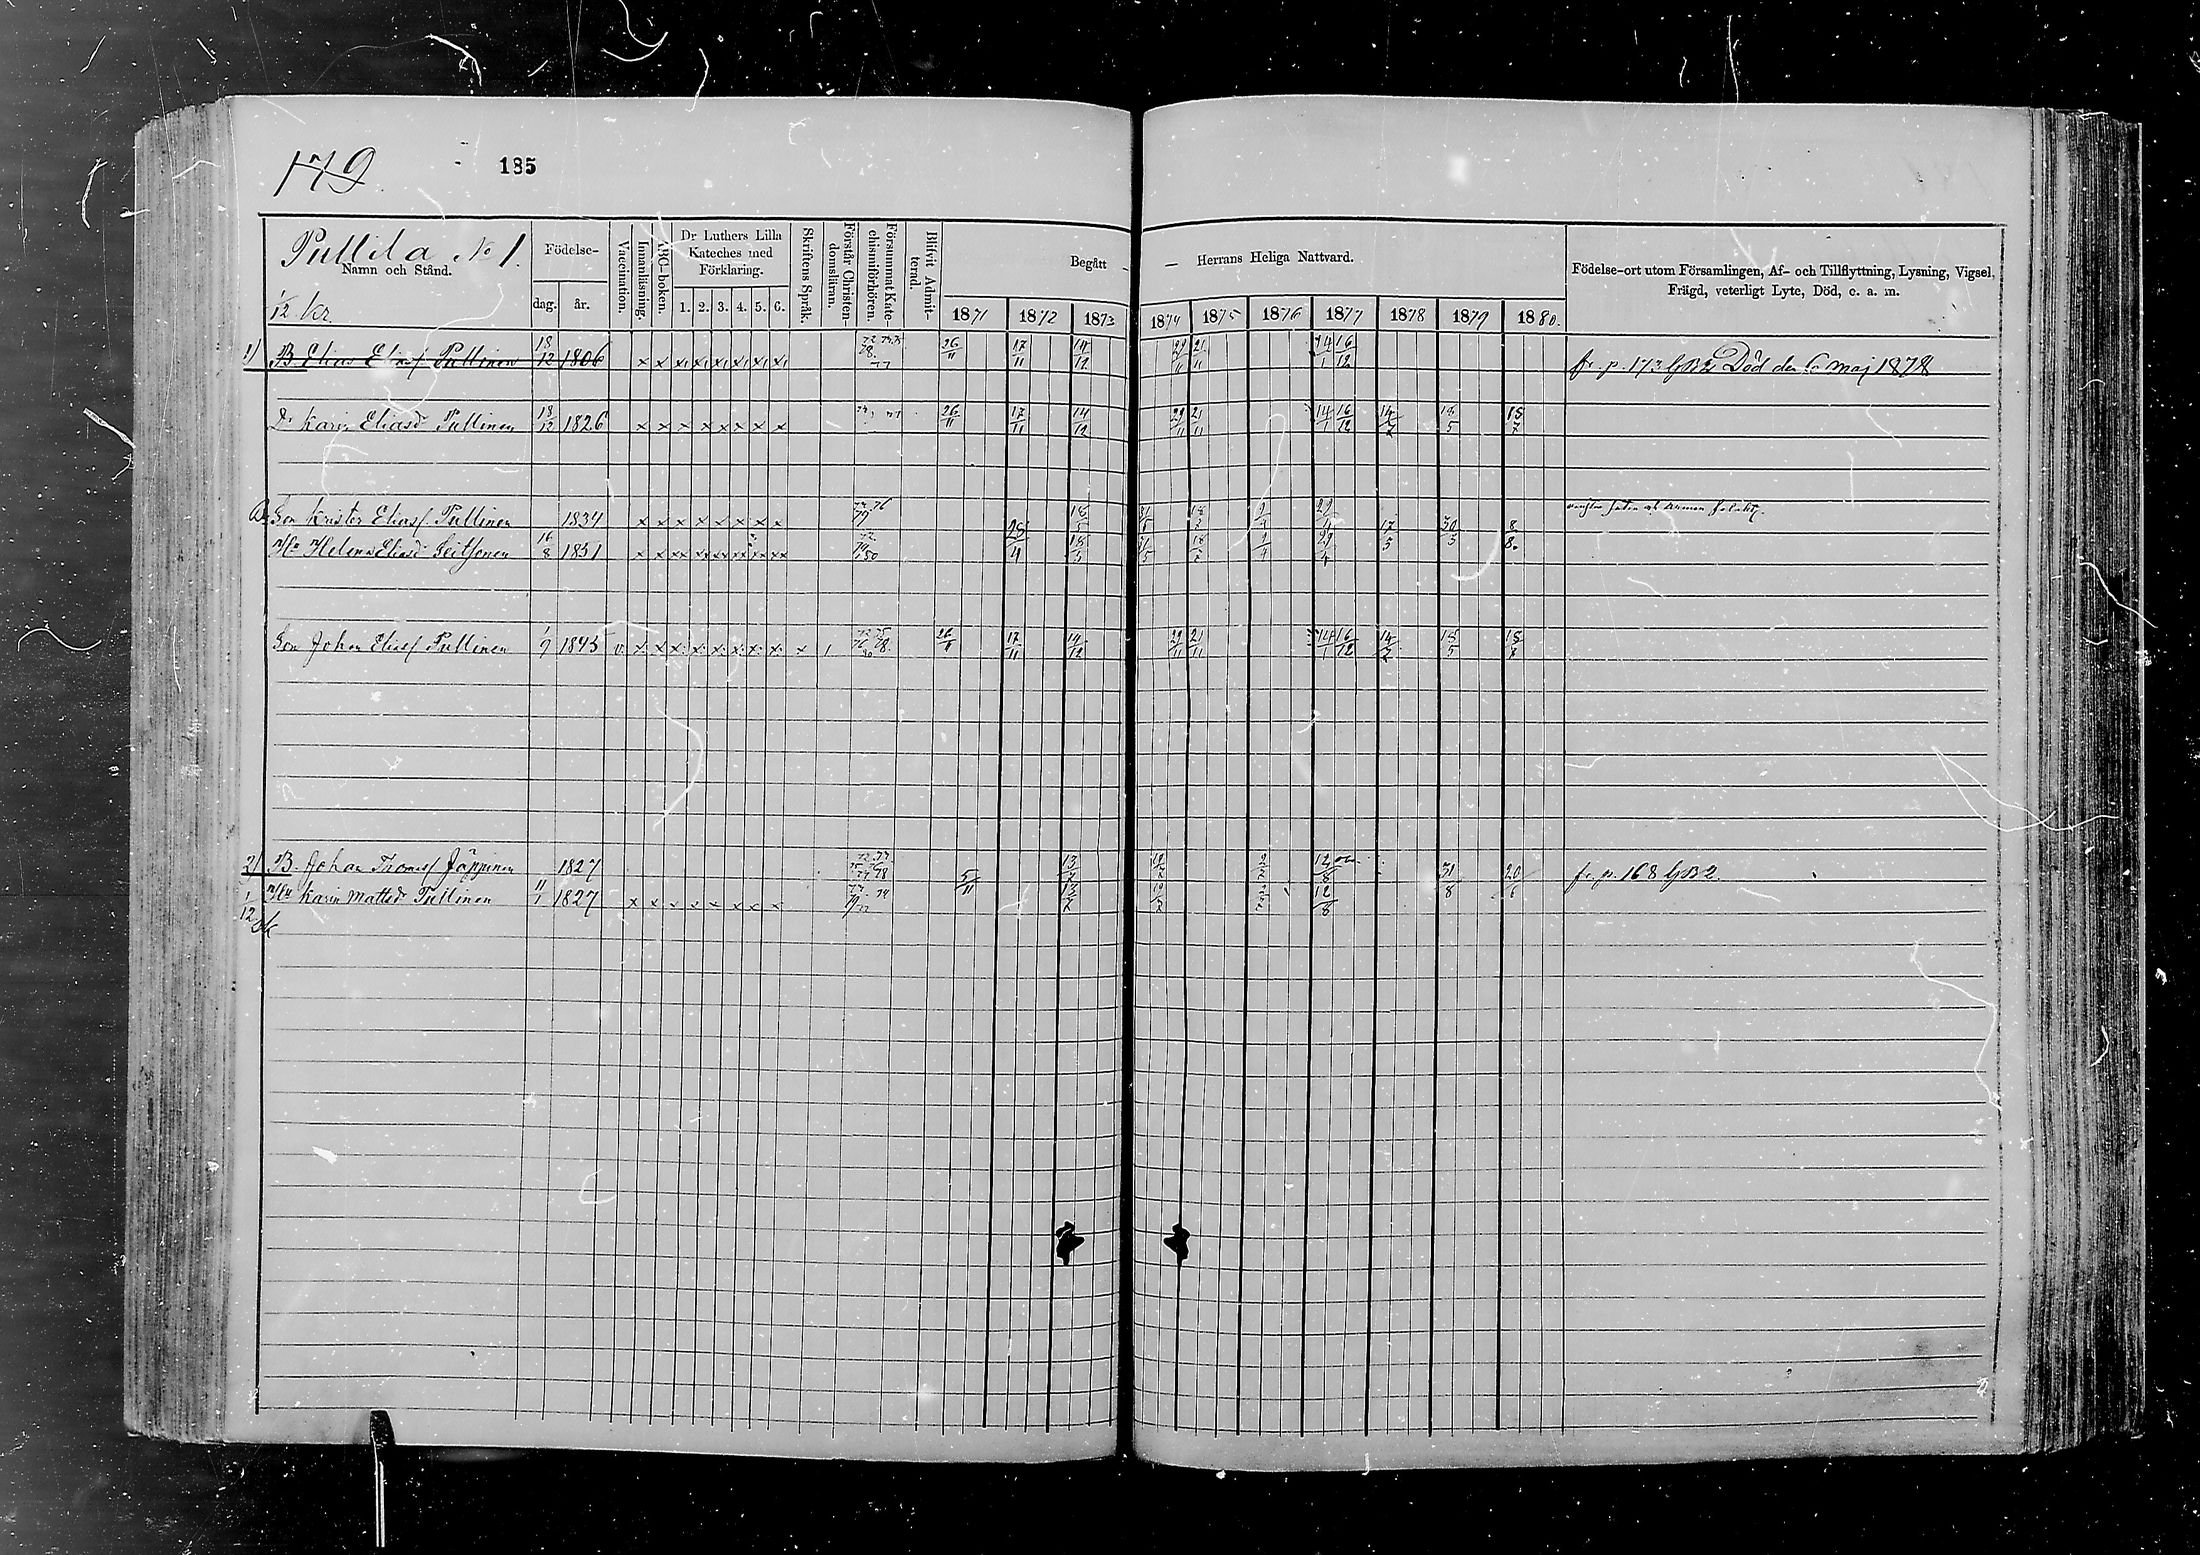 179
185
Pullila No 1.
Namn och Stånd.
1/2 kr.
Födelse-
dag. år.
Vaccination.
Innanläsning.
ABC-boken.
Dr Luthers Lilla Kateches med Förklaring.
1. 2. 3. 4. 5. 6.
Skriftens Språk.
Förstår Christendomsläran.
Försummat Katechismiförhören.
Blifvit Admitterad.
Begått — Herrans Heliga Nattvard.
1871 1872 1873 1874 1875 1876 1877 1878 1879 1880.
Födelse-ort utom Församlingen, Af- och Tillflyttning, Lysning, Vigsel,
Frägd, veterligt Lyte, Död, c. a. m.
1) B. Elias Eliass Pullinen 18/12 1806 x x x x x x x x 26/11 17/11 14/12 29/11 21/11 14/1 16/12 fr. p. 173 GB2 Död den 6 maj 1878
Dr Karin Eliasdr Pullinen 18/12 1826 x x x x x x x x 26/11 17/11 14/12 29/11 21/11 14/1 16/12 14/7 18/5 18/7
Son Krister Eliass. Pullinen 1834 x x x x x x x x 17/5 30/5 8/8
Hu Helena Eliasdr Seitsonen 16/8 1851 x x xx xx xx xx xx xx 28/4 18/5 31/5
Son Johan Eliass Pullinen 1/9 1845 v. x x x x x x x x x 1 26/11 17/11 14/12 29/11 21/11 14/1 16/12 14/7 18/5 18/7
2) B. Johan Thomass Jäppinen 1827 5/11 13/7 19/7 12/8 31/8 20/6 fr. p. 168 GB2.
Hu Karin Mattsdr Pullinen 11/1 1827 x x x x x x x x 13/7 19/7 12/8
1/12 sk